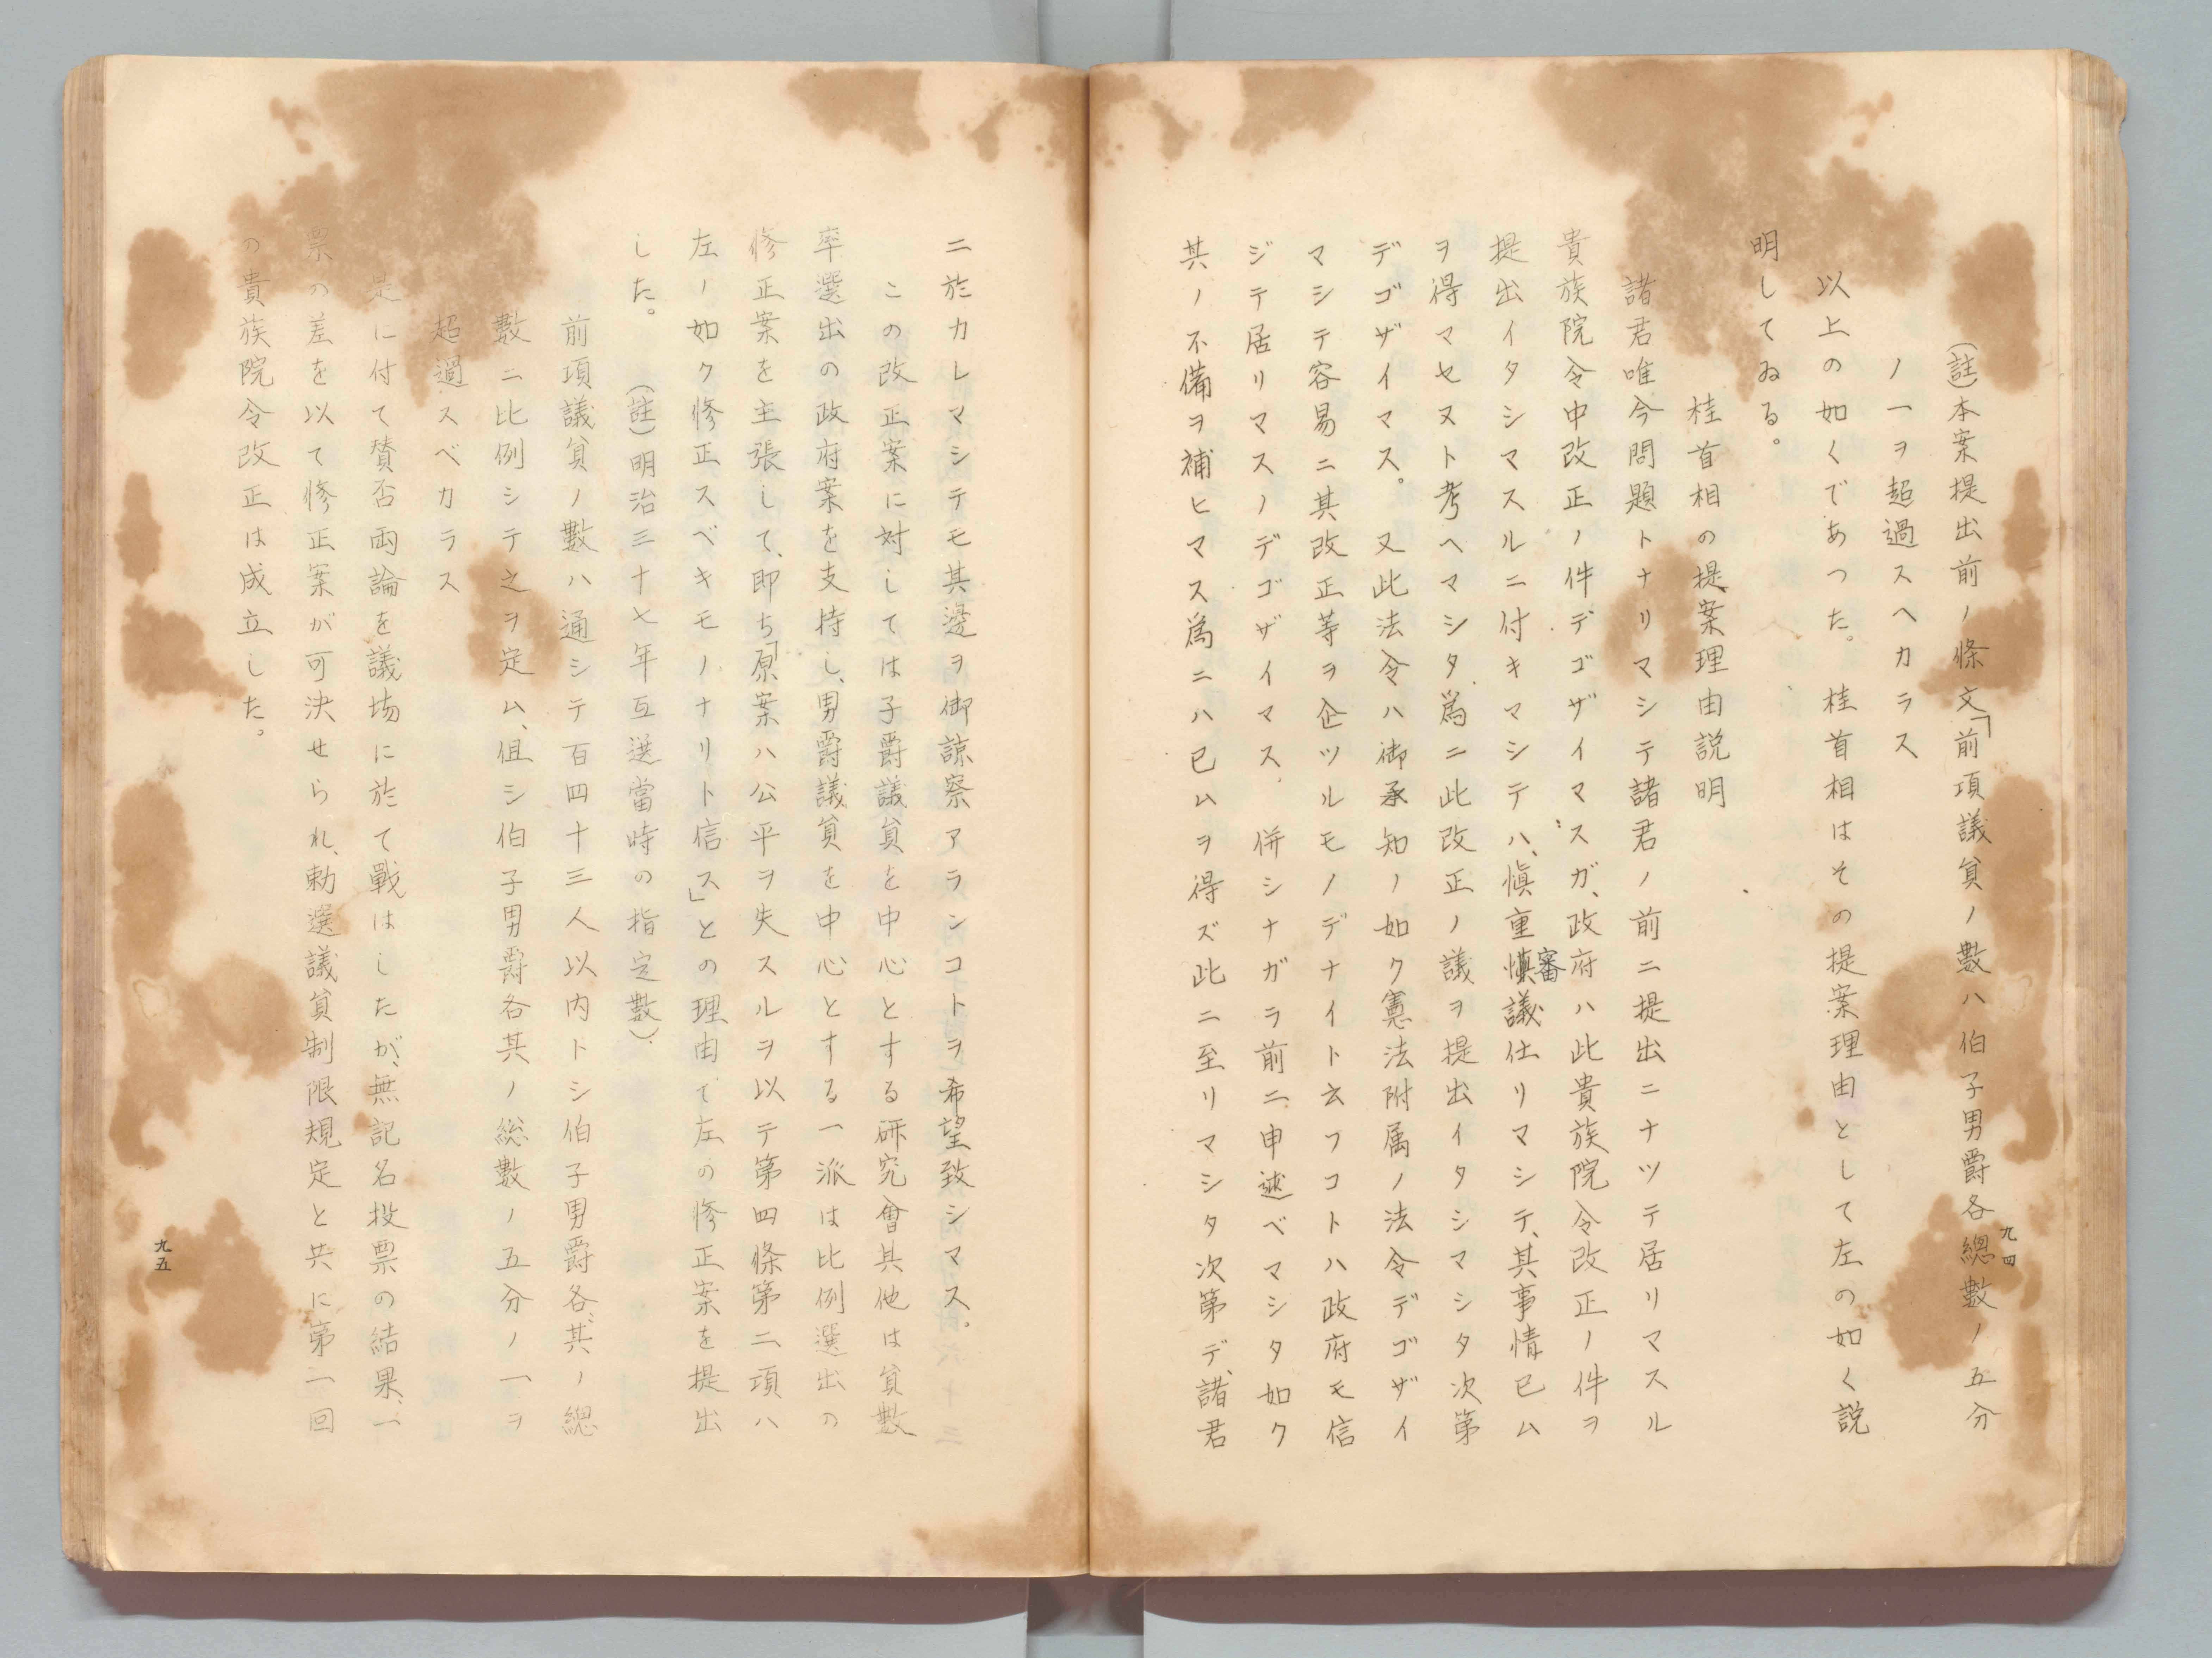 (註)本案提出前ノ條文「前項議員ノ數ハ伯子男爵各總數ノ五分
ノ一ヲ超過スヘカラス
以上の如くであつた。桂首相はその提案理由として左の如く説
明してゐる。
桂首相の提案理由説明
諸君唯今問題トナリマシテ諸君ノ前ニ提出ニナツテ居リマスル
貴族院令中改正ノ件デゴザイマスガ、政府ハ此貴族院令改正ノ件ヲ
提出イタシマスルニ付キマシテハ、愼重愼審議仕リマシテ、其事情已ム
ヲ得マセヌト考ヘマシタ爲ニ此改正ノ議ヲ提出イタシマシタ次第
デゴザイマス。又此法令ハ御承知ノ如ク憲法附属ノ法令デゴザイ
マシテ容易ニ其改正等ヲ企ツルモノデナイト云フコトハ政府モ信
ジテ居リマスノデゴザイマス、併シナガラ前ニ申述ベマシタ如ク
其ノ不備ヲ補ヒマス爲ニハ已ムヲ得ズ此ニ至リマシタ次第デ、諸君
九四
ニ於カレマシテモ其邊ヲ御諒察アランコトヲ希望致シマス。
この改正案に対しては子爵議員を中心とする研究會其他は員數
率選出の政府案を支持し、男爵議員を中心とする一派は比例選出の
修正案を主張して、即ち「原案ハ公平ヲ失スルヲ以テ第四條第二項ハ
左ノ如ク修正スベキモノナリト信ス」との理由で左の修正案を提出
した。(註)明治三十七年互選當時の指定數)
前項議員ノ數ハ通シテ百四十三人以内トシ伯子男爵各、其ノ總
數ニ比例シテ之ヲ定ム、但シ伯子男爵各其ノ総數ノ五分ノ一ヲ
超過スベカラス
是に付て賛否両論を議場に於て戰はしたが、無記名投票の結果、一
票の差を以て修正案が可決せられ、勅選議員制限規定と共に第二回
の貴族院令改正は成立した。
九五